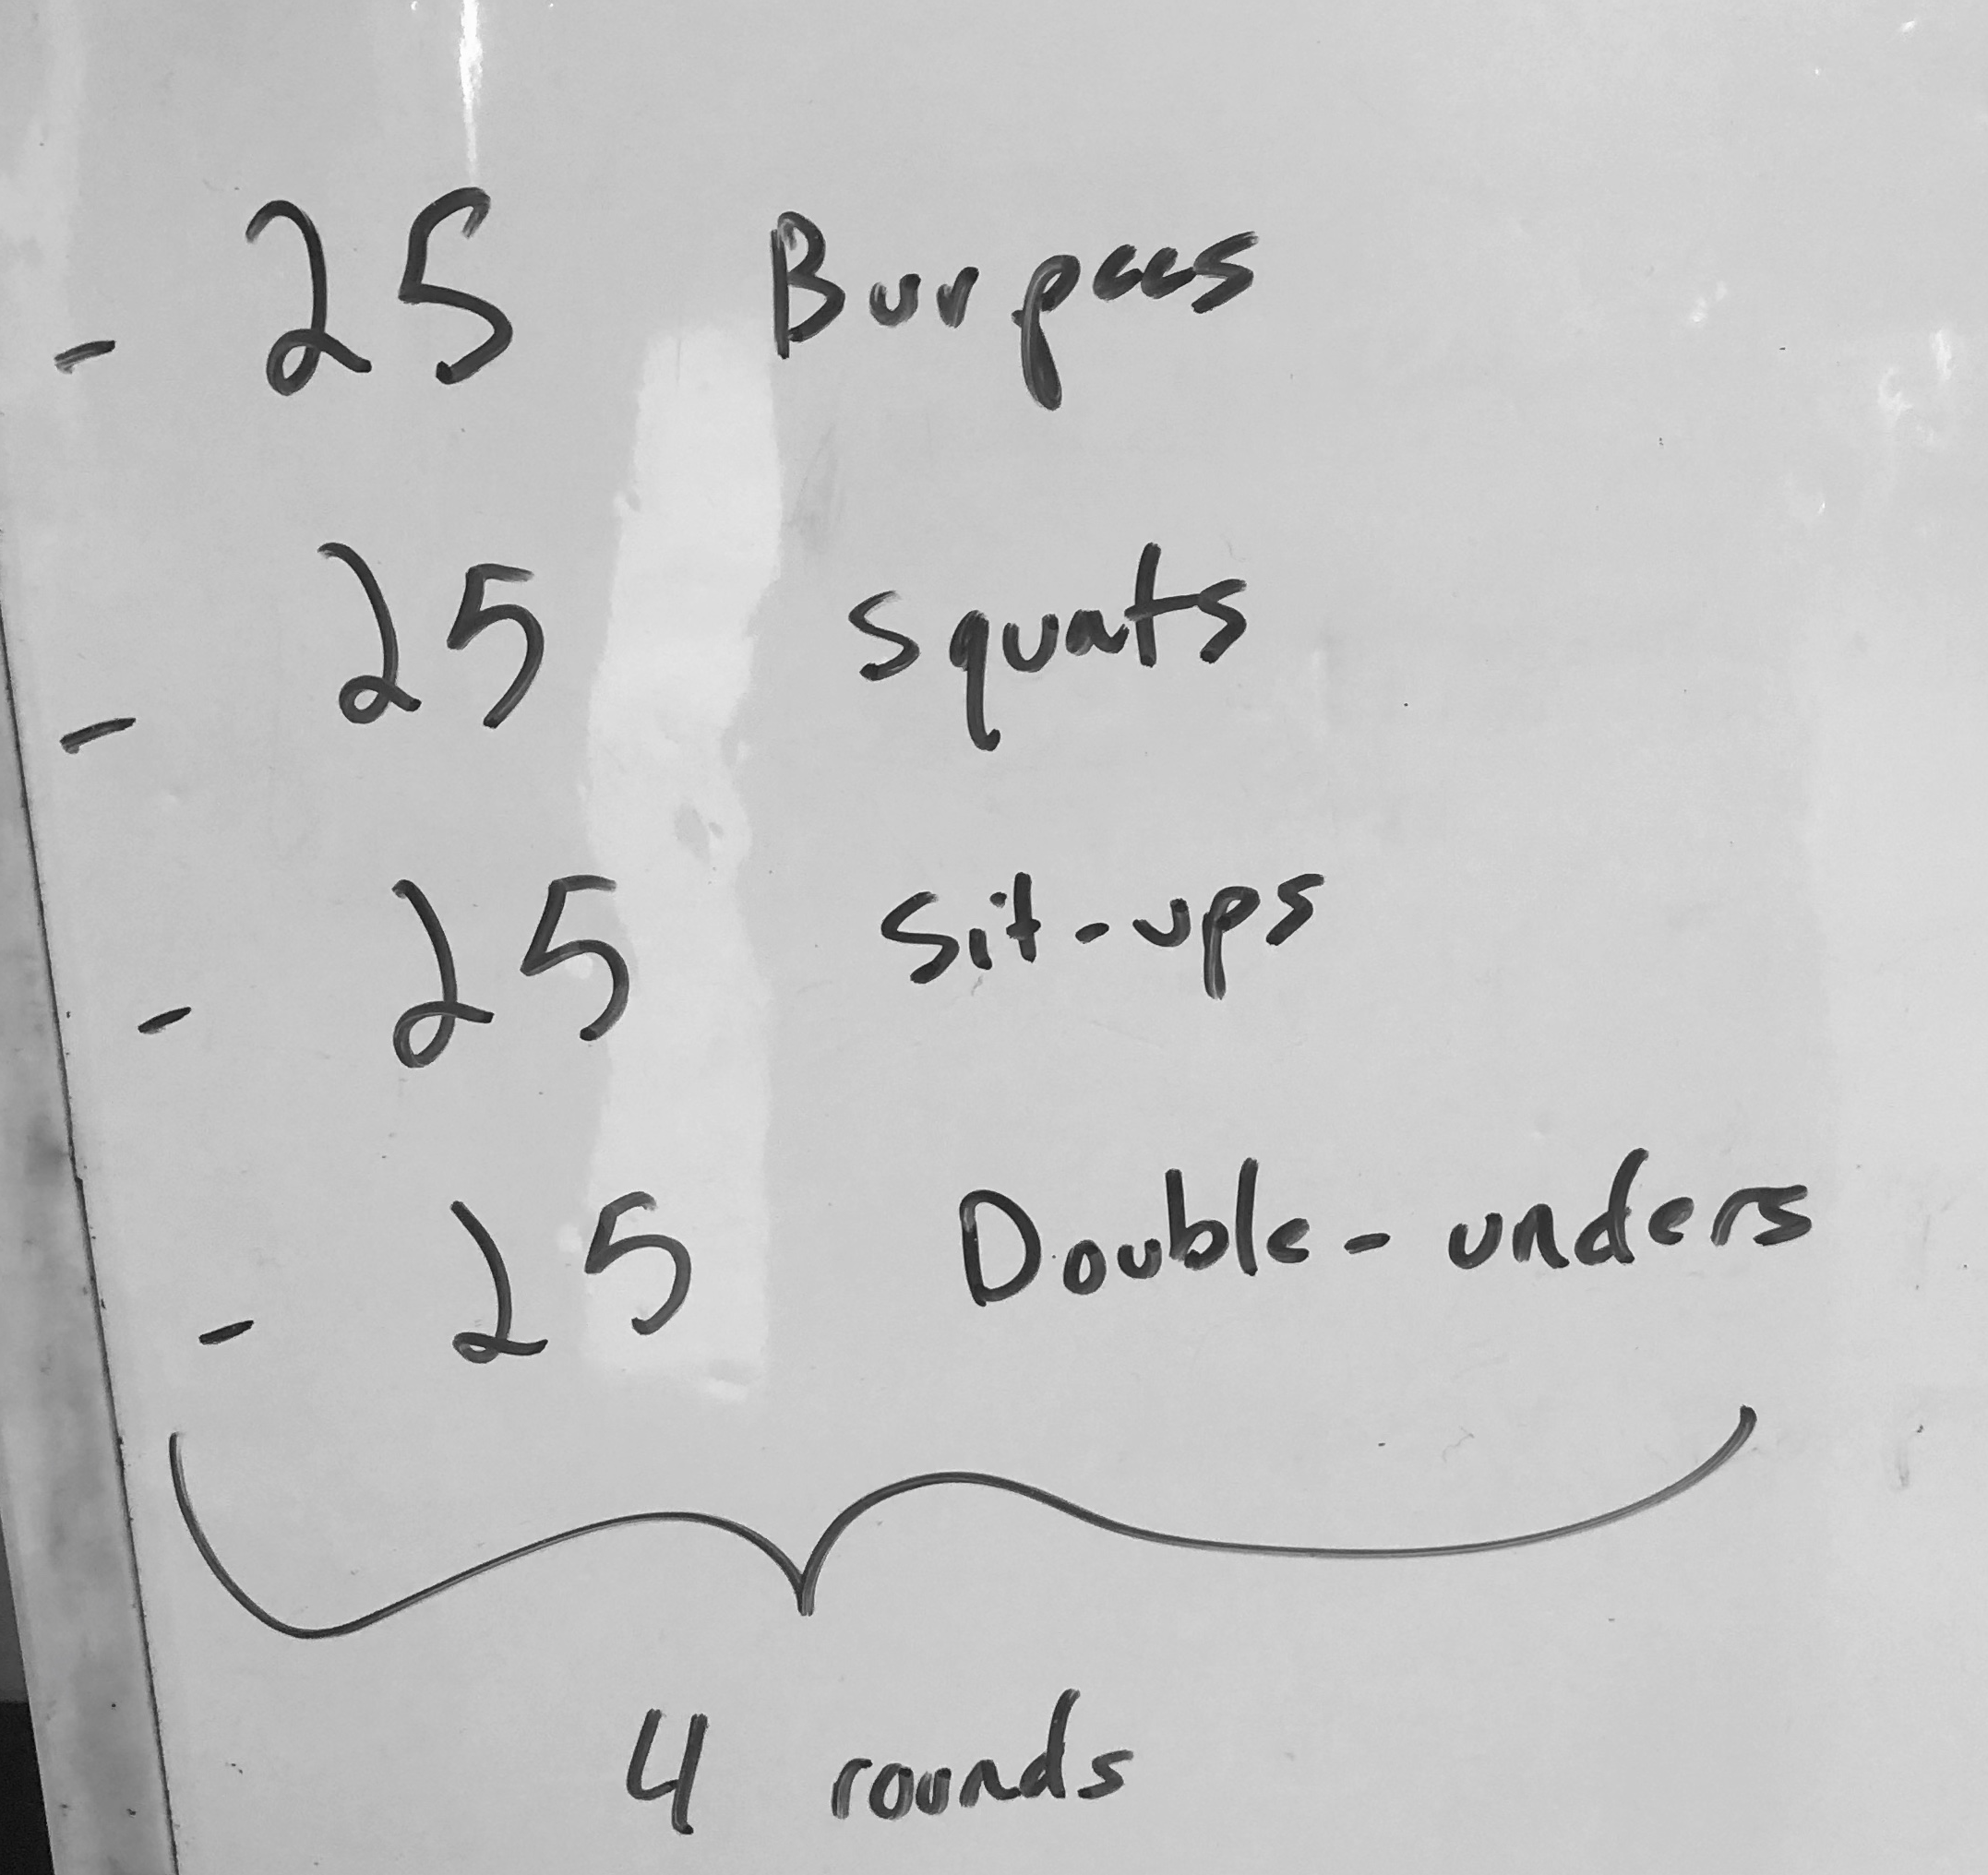 - 25 Burpees
- 25 squats
- 25 Sit-ups
- 25 Double-unders
4 rounds